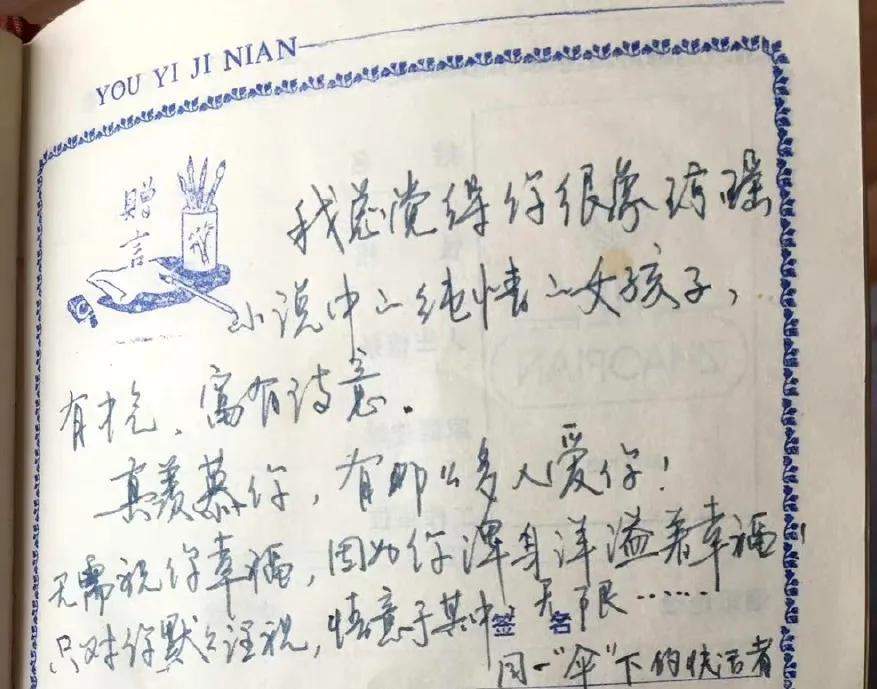 YOU YI JI NIAN
赠言
我总觉得你很像琼瑶
小说中的纯情的女孩子,
有、富有诗意.
真羡慕你,有那么多人爱你!
无需祝你幸福,因为你浑身洋溢着幸福!
只对你默默注视,情意于其中无限……
签名
同一“伞”下的快活者